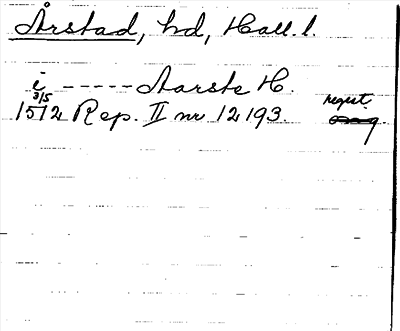 Årstad, hd, Hall. l.
i ----- Aarste H.
3/5
1512 Rep. II nr 12193. regest.